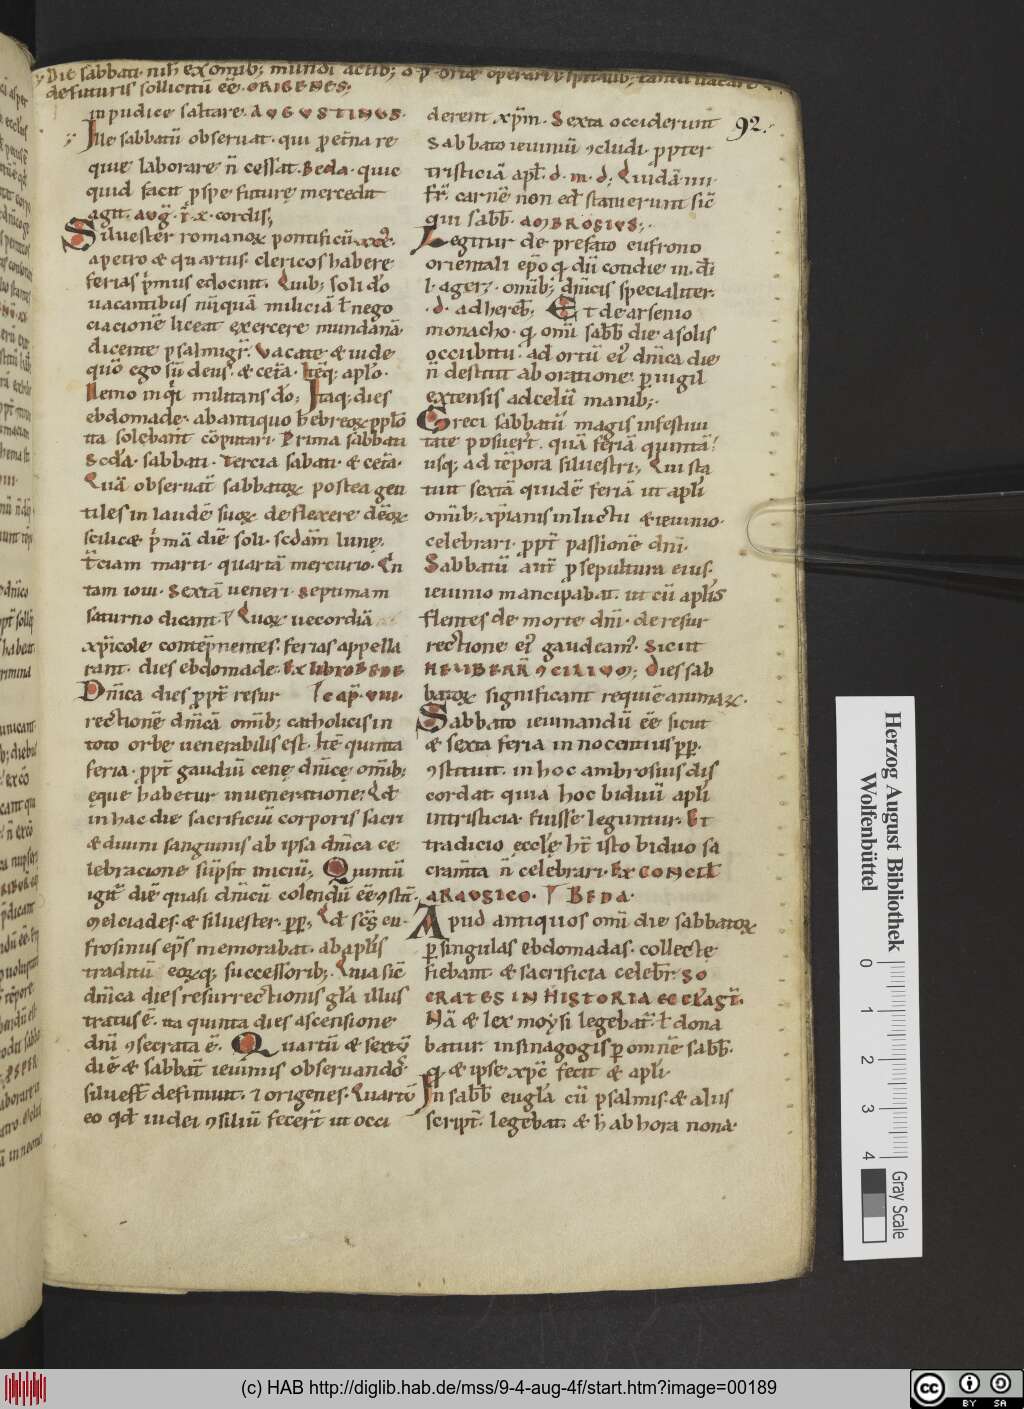 Die sabbati nih ex omib; mundi actib; o p ortæ operari. si spitalib; tantū vacare
de futuris sollicitū eē. ORIGENES.
inpudice saltare. AUGUSTINUS.
Ille sabbatū observat. qui p et̄na re
quie laborare n̄ cessat. Beda. quic
quid facit p spe future mercedis
agit. auḡ. i. x. cordis;
Silvester romanoꝝ pontificū
a petro & quartus. clericos habere
ferias p̄mus edocuit. Quib; soli dō
vacantibus nūquā miliciā ł nego
ciacionē liceat exercere mundanā.
dicente psalmigr̄. Vacate & vide
quō ego sū deus. & cet̄a. Itēq; aplō.
Nemo inqͥt militans dō; Itaq; dies
ebdomade. ab antiquo hebreoꝝ pplō
ita solebant cōputari. Prima sabbati
Scd̄a. sabbati. Tercia sabati. & cet̄a.
Quā observat̄ sabbatoꝝ postea gen
tiles in laudē suoꝝ deflexere dēoꝝ
scilicæ p̄mā diē soli. scd̄am lunę.
t̄ciam marti. quartā mercurio. Qn
tam iovi. Sextā veneri. Septimam
saturno dicant. Quoꝝ vecordiā
xp̄icole contēpnentes. ferias appella
rant. dies ebdomade. Ex libro BEDE
Dn̄ica dies ꝓpt̄ resur cap. viii.
rectionē dn̄icā omib; catholicis in
toto orbe venerabilis est. Itē quinta
feria. ꝓpt̄ gaudiū cenę dn̄icę omib;
ęque habetur in veneratione; Qd
in hac die sacrificiū corporis sacri
& divini sanguinis ab ipsa dn̄ica ce
lebracione sūpsit iniciū; Quintū
igit̄ diē quasi dn̄icū colendū eē ꝯstit̄.
Melciades. & silvester. pp; Qd scs̄ eu
frosinus ep̄s memorabat. ab aplīs
traditū eoꝝq; successorib; Quia sic̄
dn̄ica dies resurrectionis glā illus
tratus ē. ita quinta dies ascensione
dn̄i ꝯsecrata ē. Quartū & sextū
diē & sabbat̄ ieiuniis observandos̄
silvest̄ definiunt. & origenes. Quartū
eo qd iudei ꝯsiliū fecer̄t ut occi
92.
derent xp̄m. Sexta occiderunt
Sabbato ieiuniū ꝯcludi. ꝓpter
tristiciā apl̄. d. m. d; Quidā nn
fr̄. carnē non ed̄ statuerunt sic̄
qui sabb̄. AMBROSIUS;
Legitur de prefato eufronio
orientali ep̄o qͥ dū cotidie in. d̄i
l. ager;. omib; dn̄icis specialiter.
d. adhereb̄; Et de arsenio
monacho. qͥ omī sabb̄ die a solis
occubitu. ad ortū ei dn̄ica die
n̄ destitit ab oratione. pvigil
extensis ad celū manib;.
Greci sabbatū magis infestivi
tate posuer̄t. quā feriā quintā.
usq; ad tēpora silvestri; Qui sta
tuit sextā quidē feriā ut aplī
omib; xp̄ianis in luctu & ieiunio.
celebrari. ꝓpt̄ passionē dn̄i.
Sabbatū aut̄ p sepultura eius.
ieiunio mancipabat. ut cū aplīs
flentes de morte dn̄i. de resur
rectione ei gaudeam. Sicut
dies sab
batoꝝ significant requiē animaꝝ.
Sabbato ieiunandū eē sicut
& sexta feria innocentius pp.
ꝯstituit. in hoc ambrosius dis
cordat. quia hoc biduū aplī
in tristicia fuisse leguntur. Et
tradicio ecclę ht̄ isto biduo sa
cram̄ta n̄ celebrari. Ex CONCIL
ARAUSICO. BEDA.
Apud antiquos omī die sabbatoꝝ
p singulas ebdomadas. collectę
fiebant. & sacrificia celebr̄. SO
CRATES IN HISTORIA ECCLAST̄.
Nā & lex moysi legebat̄. ł dona
batur. in sinagogis p omnē sabb̄.
qͥ & ipse xp̄c fecit & aplī.
In sabb̄ eugliā cū psalmis. & aliis
script̄. legebat. & h̄ ab hora nona.
Herzog August Bibliothek
Wolfenbüttel
0 1 2 3 4
Gray Scale
(c) HAB http://diglib.hab.de/mss/9-4-aug-4f/start.htm?image=00189
cc BY SA